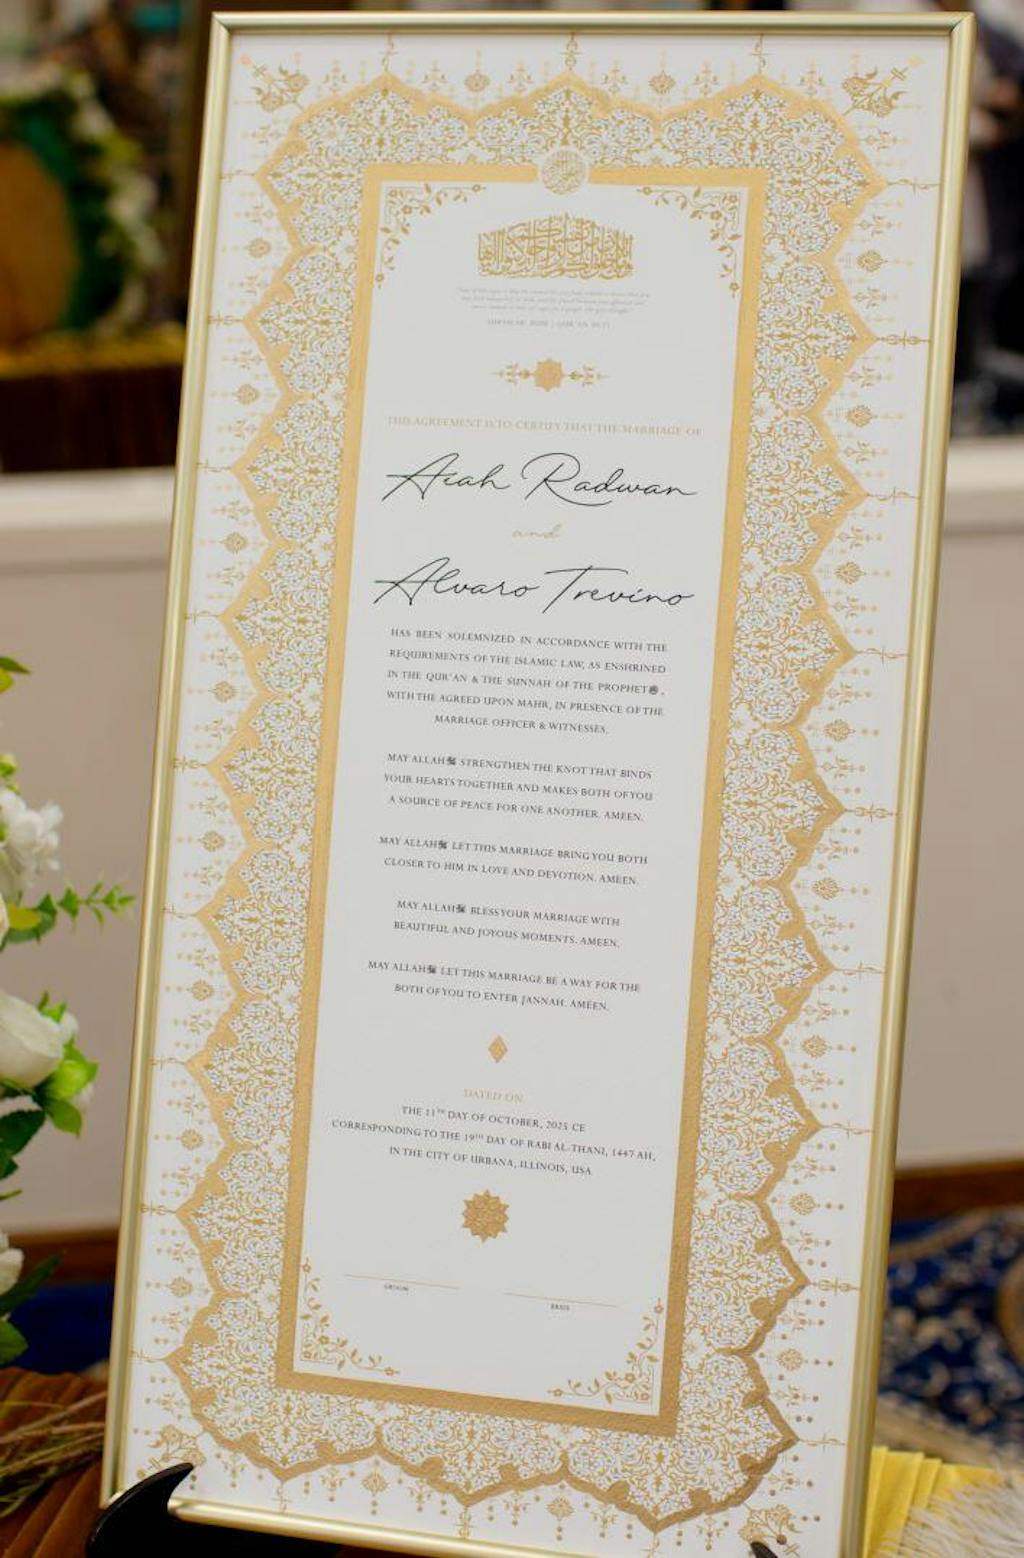 THIS AGREEMENT IS TO CERTIFY THAT THE MARRIAGE OF
Aiah Radwan
and
Alvaro Trevino
HAS BEEN SOLEMNIZED IN ACCORDANCE WITH THE
REQUIREMENTS OF THE ISLAMIC LAW, AS ENSHRINED
IN THE QUR'AN & THE SUNNAH OF THE PROPHET ﷺ,
WITH THE AGREED UPON MAHR, IN PRESENCE OF THE
MARRIAGE OFFICER & WITNESSES.
MAY ALLAH ﷻ STRENGTHEN THE KNOT THAT BINDS
YOUR HEARTS TOGETHER AND MAKES BOTH OF YOU
A SOURCE OF PEACE FOR ONE ANOTHER. AMEEN.
MAY ALLAH ﷻ LET THIS MARRIAGE BRING YOU BOTH
CLOSER TO HIM IN LOVE AND DEVOTION. AMEEN.
MAY ALLAH ﷻ BLESS YOUR MARRIAGE WITH
BEAUTIFUL AND JOYOUS MOMENTS. AMEEN.
MAY ALLAH ﷻ LET THIS MARRIAGE BE A WAY FOR THE
BOTH OF YOU TO ENTER JANNAH. AMEEN.
DATED ON
THE 11TH DAY OF OCTOBER, 2025 CE
CORRESPONDING TO THE 19TH DAY OF RABI AL-THANI, 1447 AH,
IN THE CITY OF URBANA, ILLINOIS, USA
GROOM
BRIDE